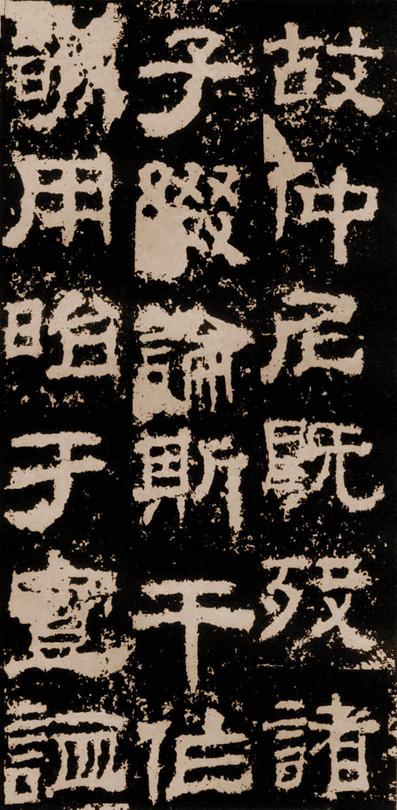 故仲尼既殁諸
子綴論斯干作
謌用昭于宣謚